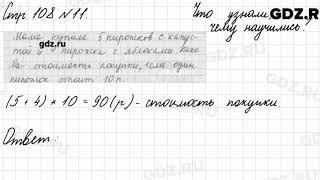 Стр 108 №11.
Что узнали,
чему научились.
GDZ.RU
Мама купила 5 пирожков с капус-
gdz.ru
той и 4 пирожка с яблоками. Како-
ва стоимость покупки, если один
пирожок стоит 10 р.
(5 + 4) * 10 = 90 (р) - стоимость покупки.
Ответ: